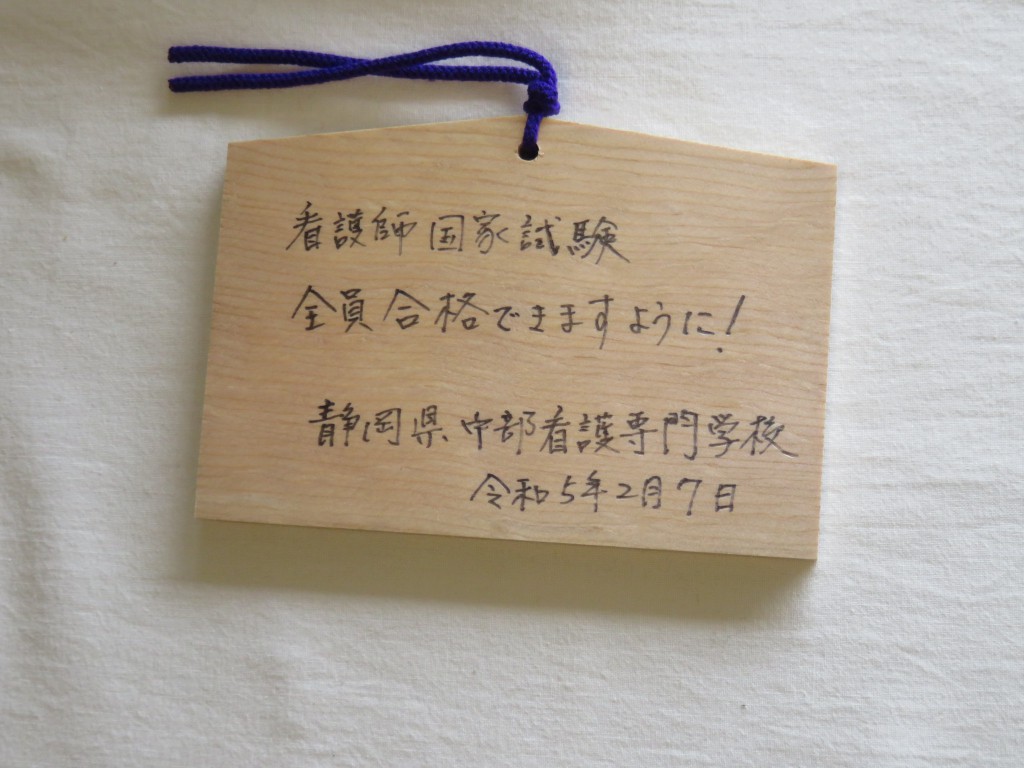 看護師国家試験
全員合格できますように!
静岡県中部看護専門学校
令和5年2月7日